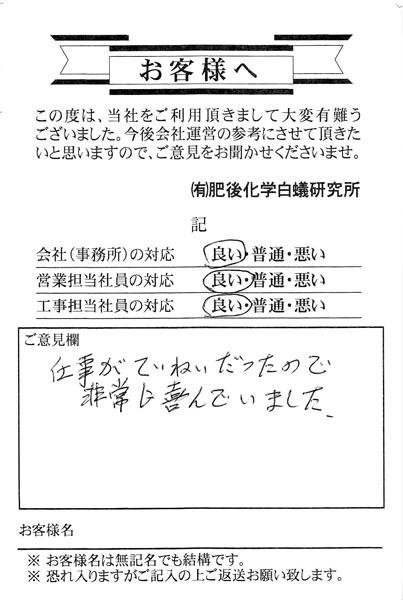 お客様へ
この度は、当社をご利用頂きまして大変有難う
ございました。今後会社運営の参考にさせて頂きた
いと思いますので、ご意見をお聞かせくださいませ。
㈲肥後化学白蟻研究所
記
会社（事務所）の対応 良い・普通・悪い
営業担当社員の対応 良い・普通・悪い
工事担当社員の対応 良い・普通・悪い
ご意見欄
仕事がていねいだったので
非常に喜んでいました.
お客様名
※ お客様名は無記名でも結構です。
※ 恐れ入りますがご記入の上ご返送お願い致します。